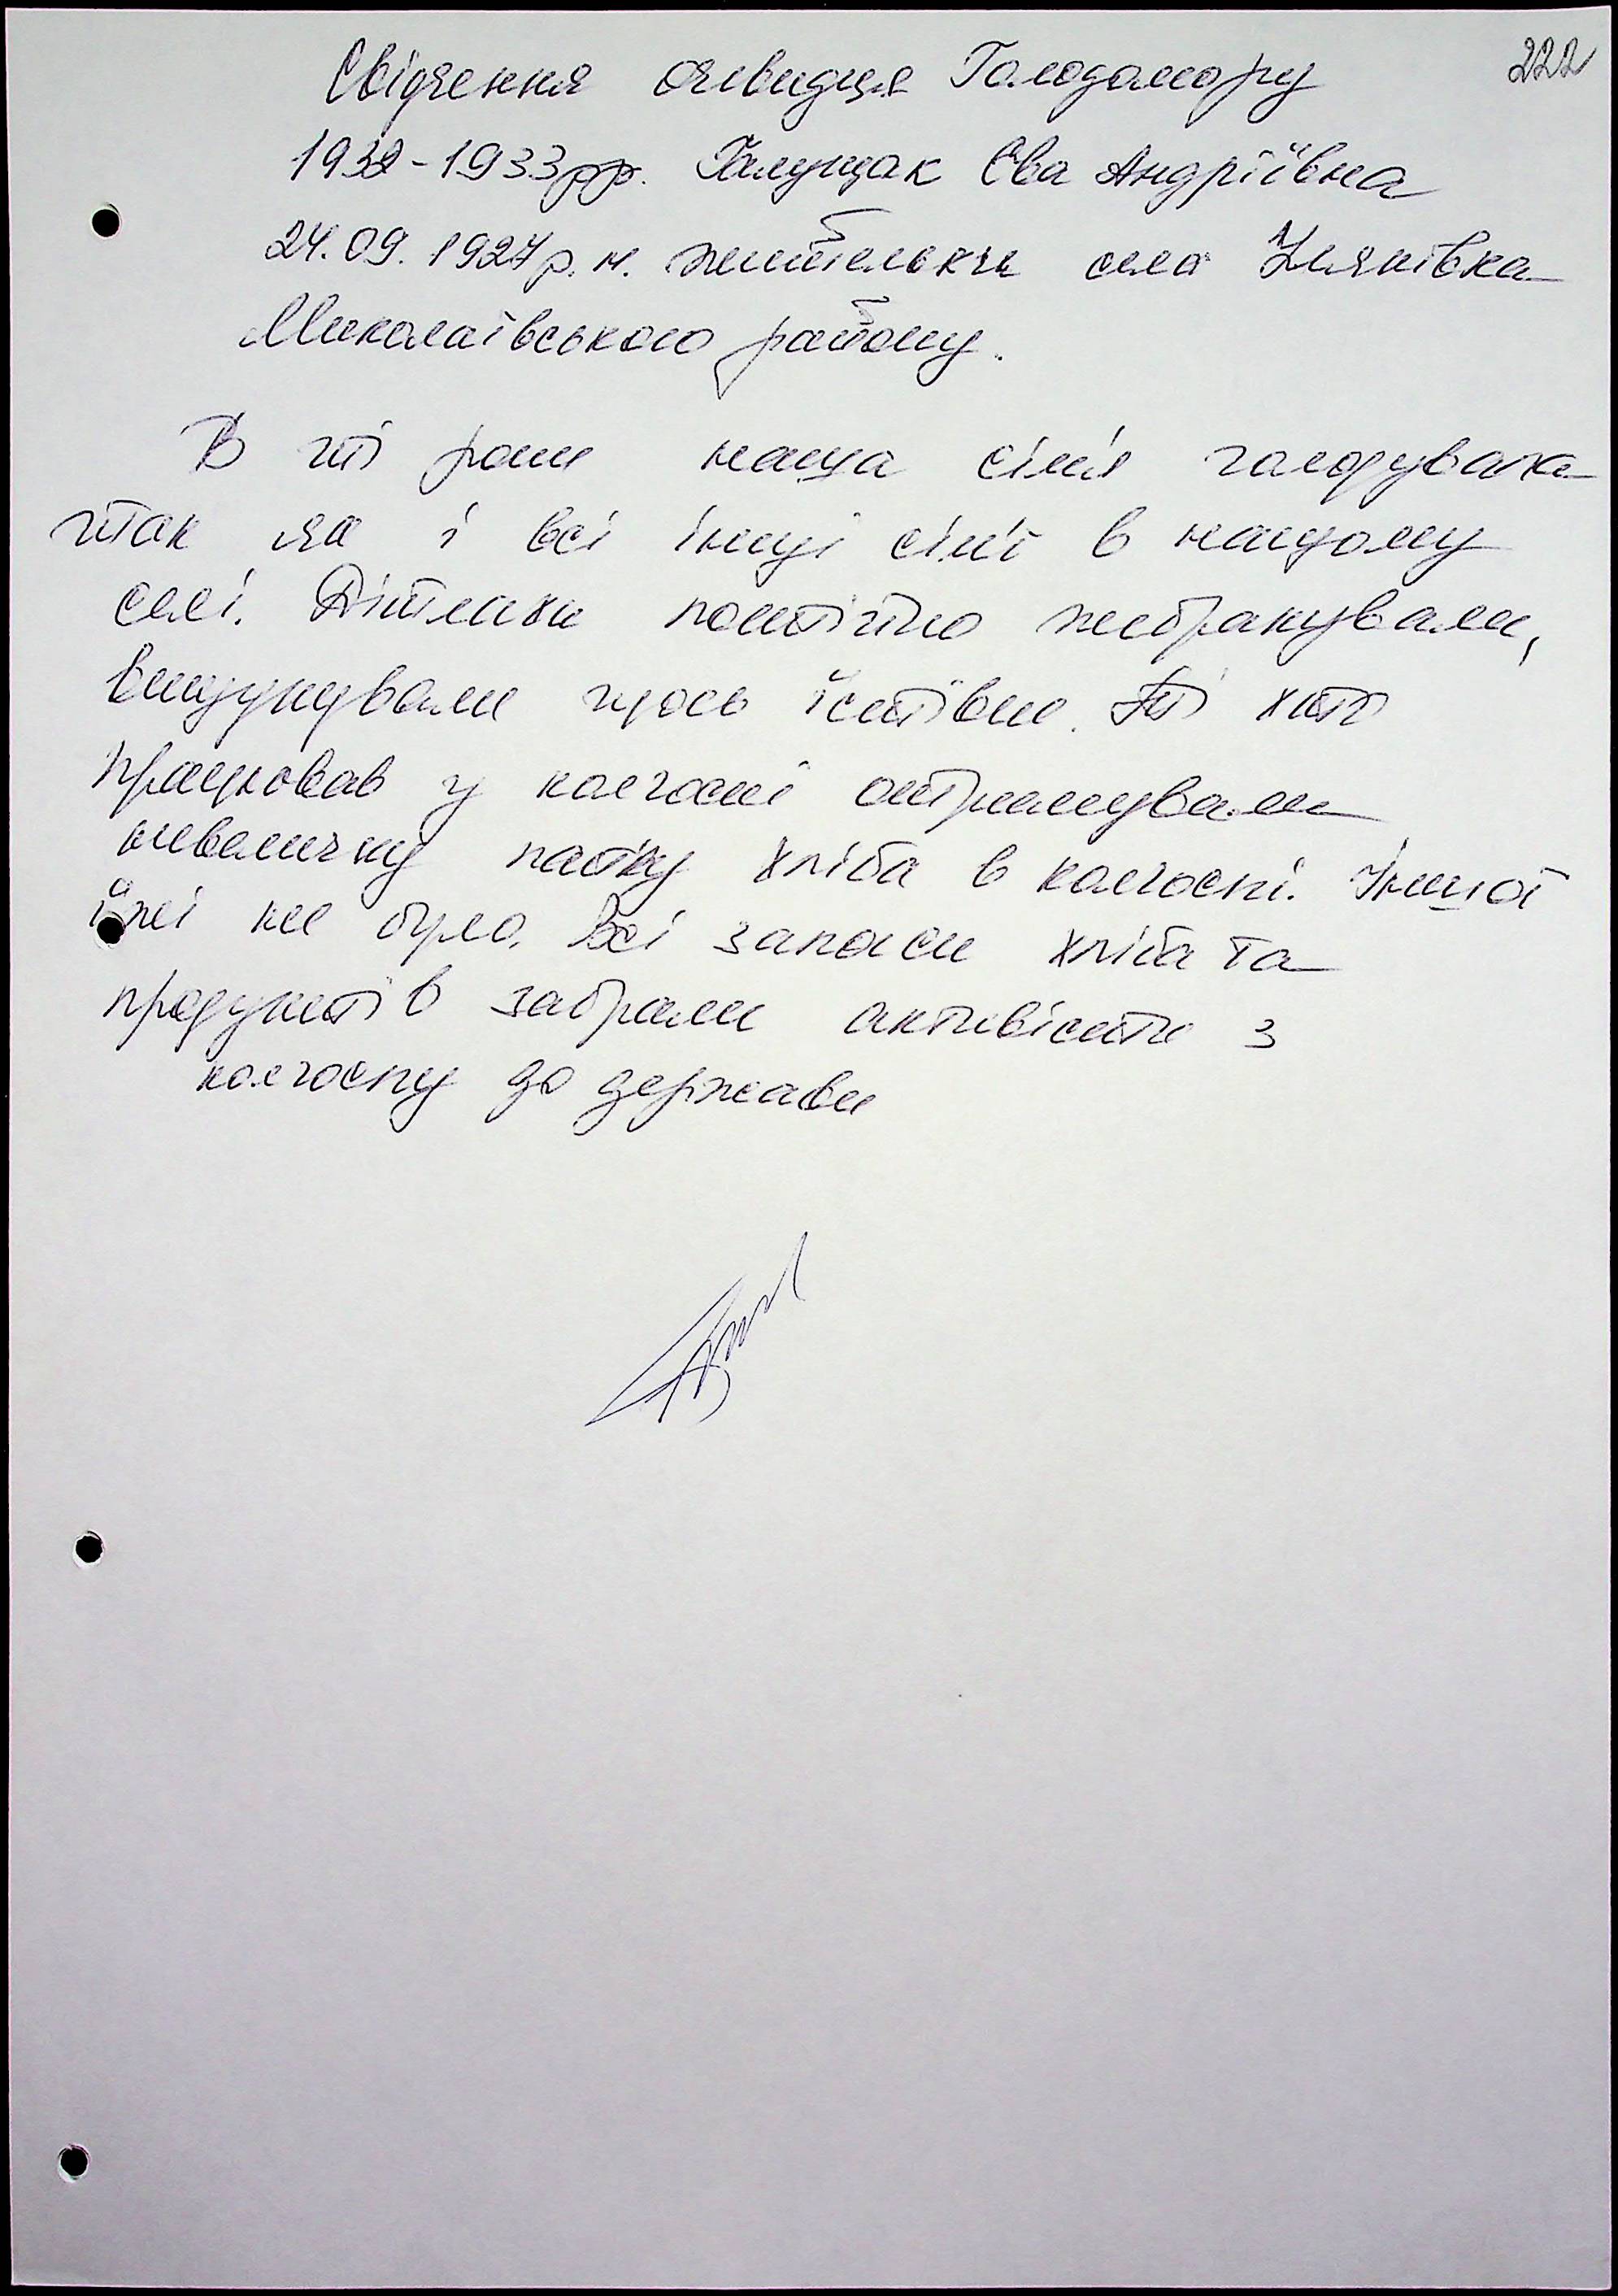 222
Свідчення очевидця Голодомору
1932-1933рр. Галущак Єва Андріївна
24.09.1927р.н. жителька села Улянівка
Миколаївського району.
В ті роки наша сім'я голодувала
так як і всі інші сім'ї в нашому
селі. Дітлахи постійно жебракували,
вишукували щось їстівне. Ті хто
працював у колгоспі отримували
невеличку пайку хліба в колгоспі. Іншої
їжі не було. Всі запаси хліба та
продуктів забрали активісти з
колгоспу до держави